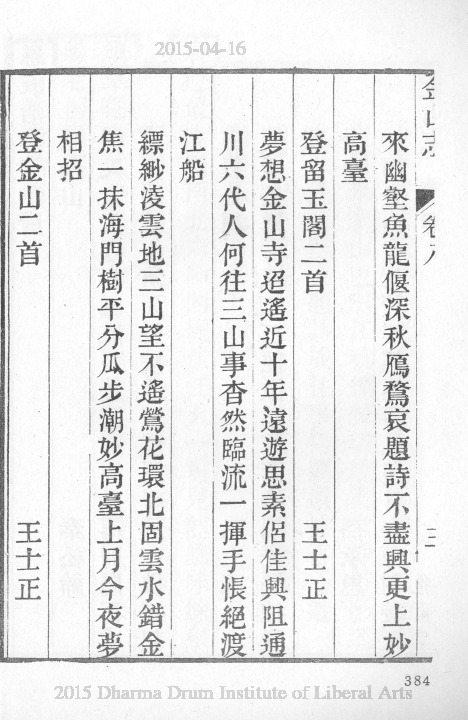 2015-04-16
金山志 卷八 三
來幽壑魚龍偃深秋鴈鶩哀題詩不盡興更上妙
高臺
登留玉閣二首 王士正
夢想金山寺迢遙近十年遠遊思素侶佳興阻通
川六代人何往三山事杳然臨流一揮手悵絕渡
江船
縹緲淩雲地三山望不遙鶯花環北固雲水錯金
焦一抹海門樹平分瓜步潮妙高臺上月今夜夢
相招
登金山二首 王士正
384
2015 Dharma Drum Institute of Liberal Arts